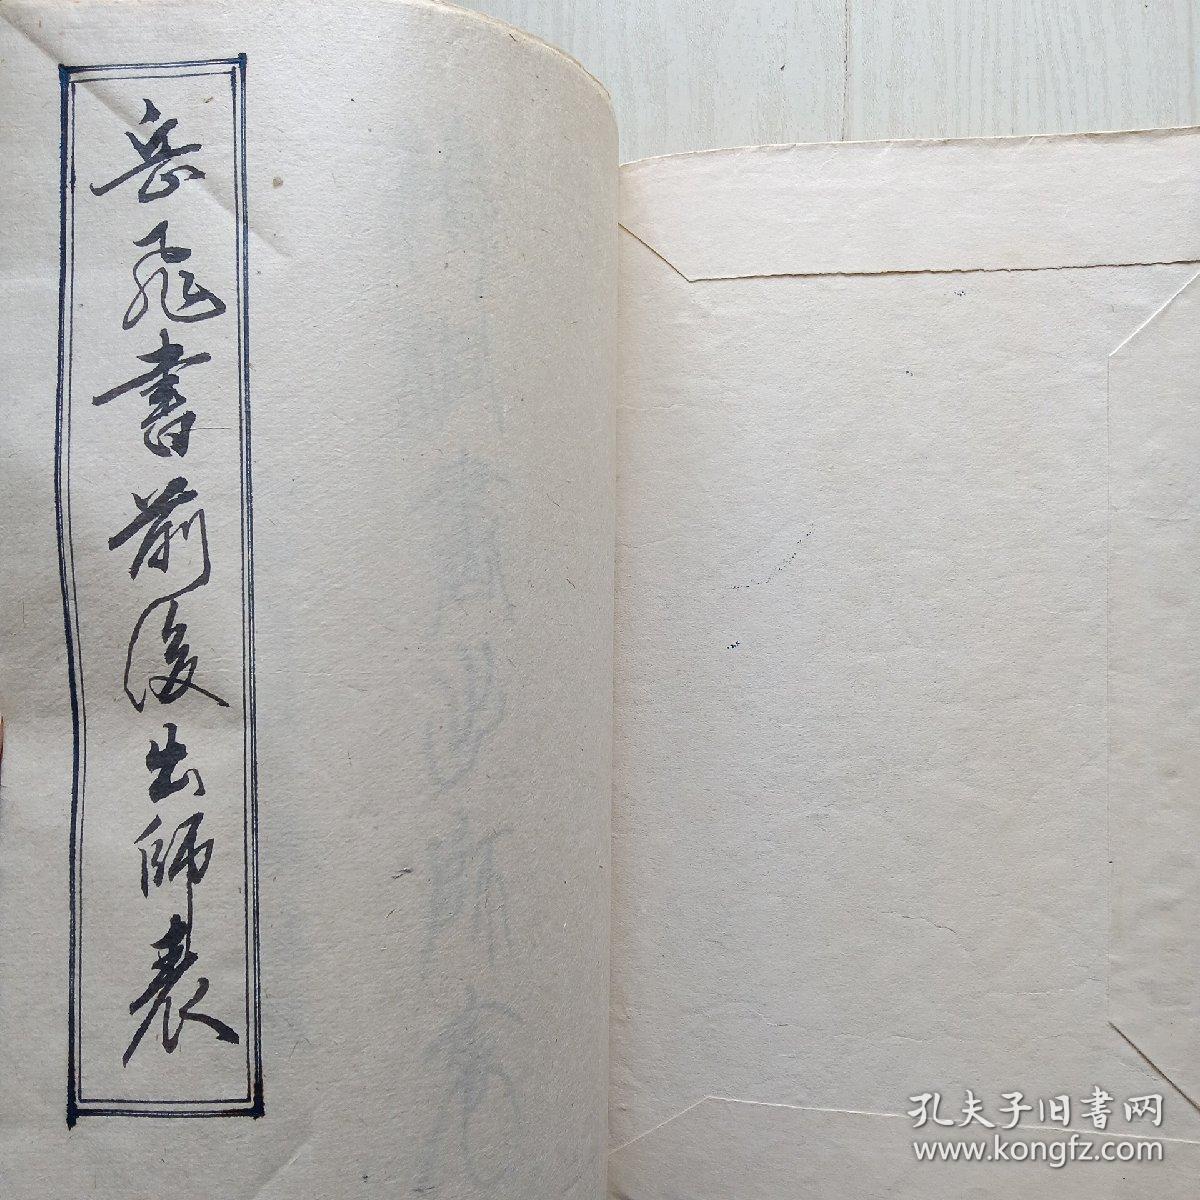 岳飛書前後出師表
孔夫子旧書网
www.kongfz.com